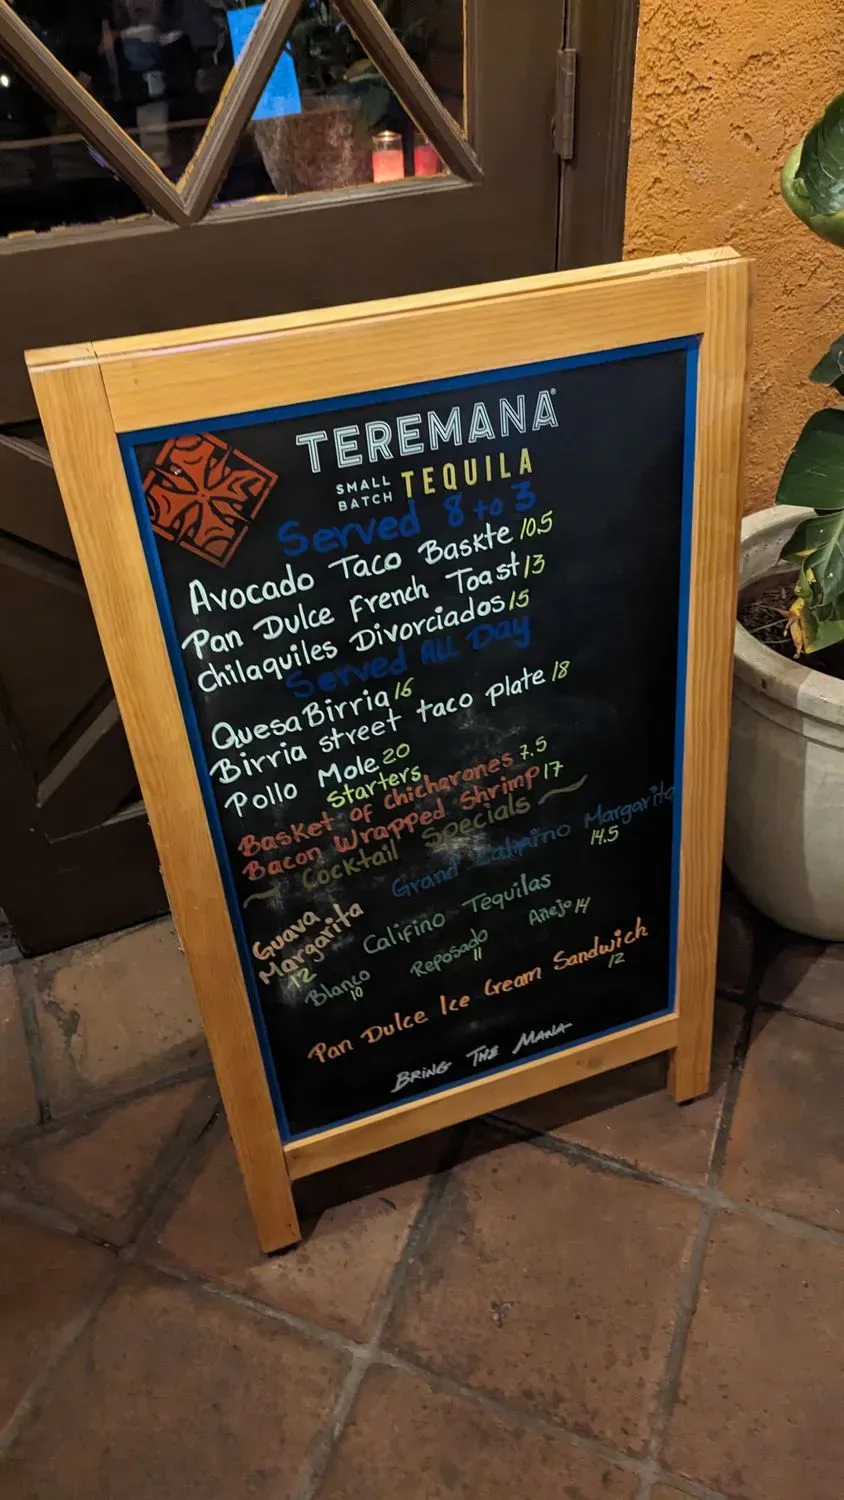 TEREMANA
SMALL BATCH TEQUILA
Served 8 to 3
Avocado Taco Baskte 10.5
Pan Dulce French Toast 13
Chilaquiles Divorciados 15
Served All Day
QuesaBirria 16
Birria street taco plate 18
Pollo Mole 20
Starters
Basket of chicharones 7.5
Bacon Wrapped Shrimp 17
~ Cocktail Specials ~
Grand Califino Margarita
14.5
Guava
Margarita
12
Califino Tequilas
Blanco Reposado Añejo 14
10 11
Pan Dulce Ice Cream Sandwich
12
BRING THE MANA